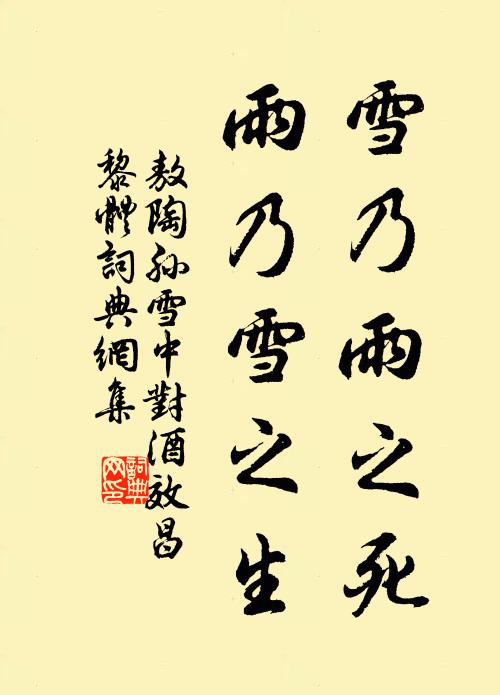 雪乃雨之死
雨乃雪之生
敖陶孙雪中對酒效昌
黎體詞典網集
詞典
网印